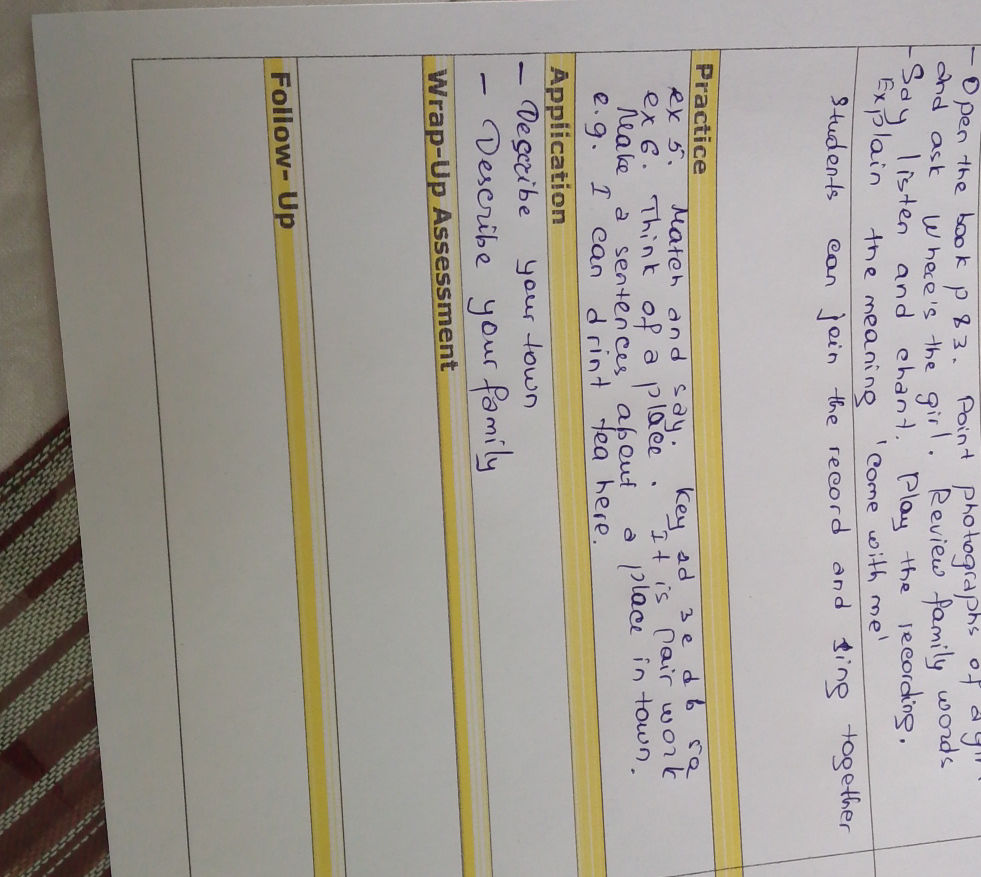 - Open the book p 83. Point photographs of a
and ask Where's the girl. Review family words
- Say listen and chant. Play the recording.
Explain the meaning 'come with me'
students can join the record and sing together
Practice
ex 5. Match and say. Key
ex 6. Think of a place. It is pair work
Make a sentences about a place in town.
e.g. I can drint tea here.
Application
- Describe your town
- Describe your family
Wrap-Up Assessment
Follow- Up